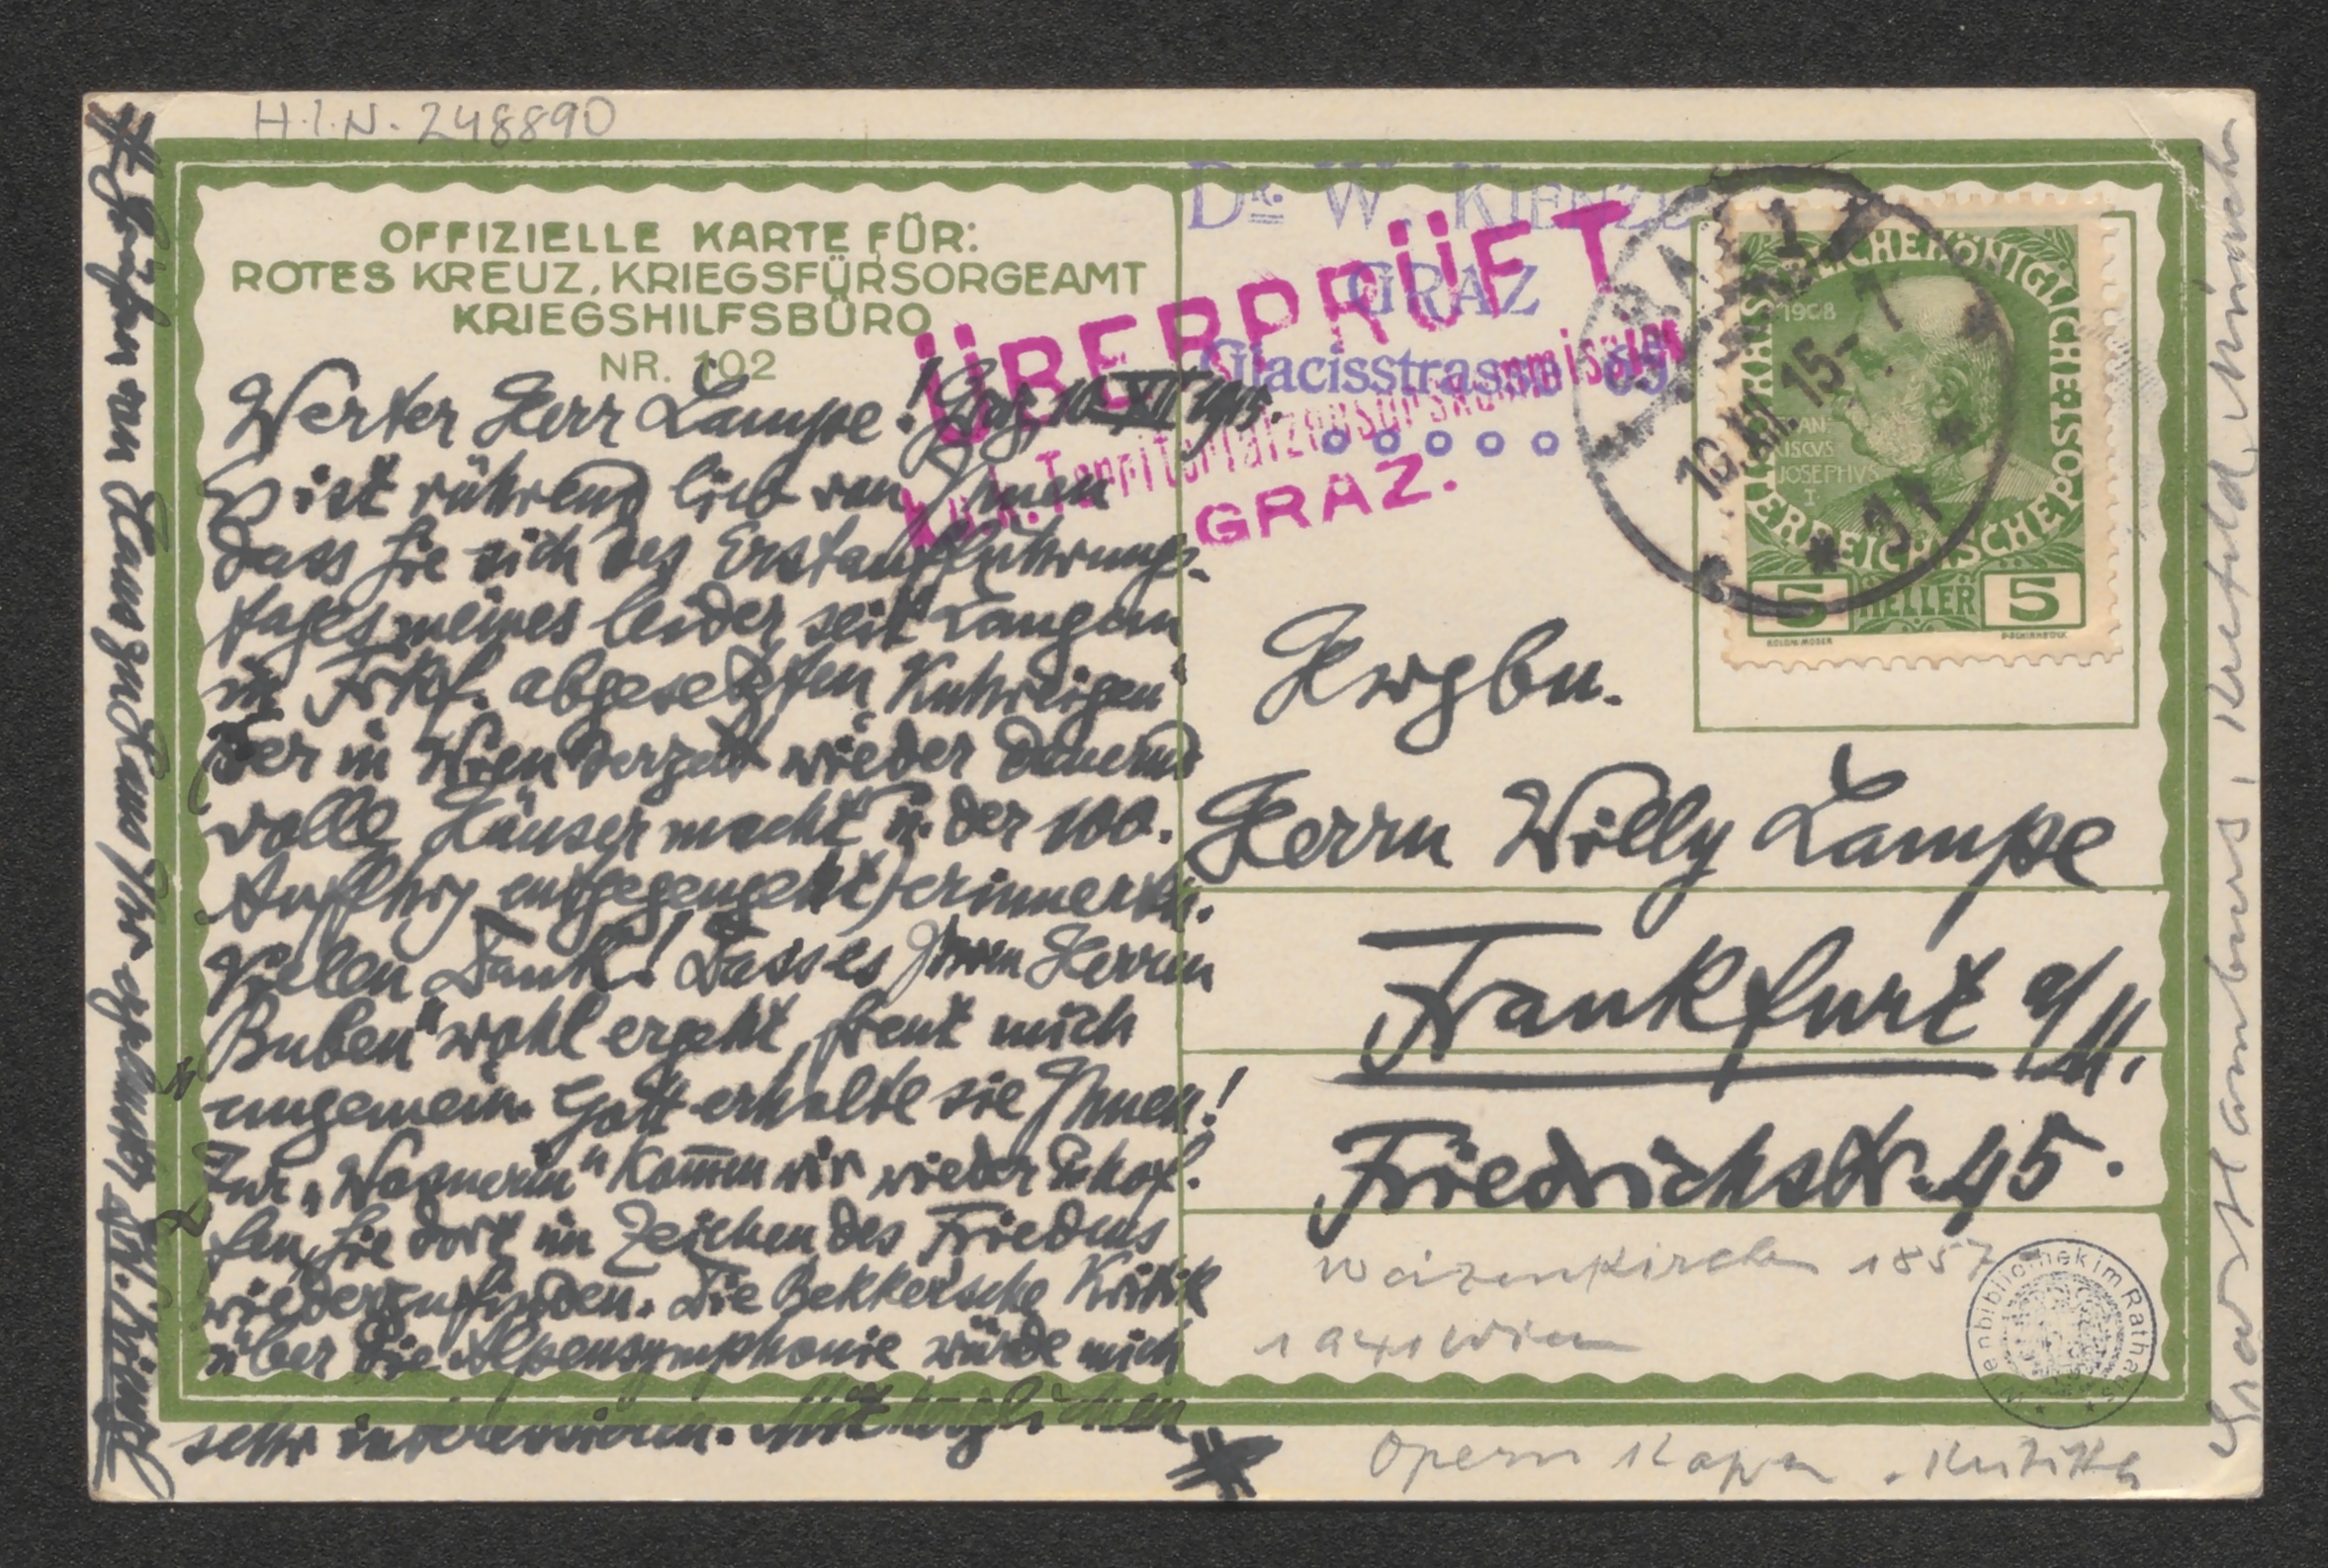 H.I.N. 248890
OFFIZIELLE KARTE FÜR:
ROTES KREUZ, KRIEGSFÜRSORGEAMT
KRIEGSHILFSBÜRO
NR. 102
Werter Herr Lampe! Graz 10. XII 1915.
Es ist rührend lieb von Ihnen
dass Sie sich des Erstaufführungs-
tages meines leider seit Langem
in Frkf. abgesetzten „Kuhreigen"
(der in Wien derzeit wieder dauernd
volle Häuser macht u. der 100.
Aufführg entgegengeht) erinnerten.
Vielen Dank! Dass es Ihren Herren
„Buben" wohl ergeht, freut mich
ungemein. Gott erhalte sie Ihnen!
Zur „Wagnerin" kommen wir wieder u. hof-
fen, Sie dort im Zeichen des Friedens
wiederzufinden. Die Bekker'sche Kritik
über die Alpensymphonie würde mich
sehr interessieren. Mit herzlichen
*
* Grüßen von Haus zu Haus Ihr ergebenster Dr. W. Kienzl
Dr. W. KIENZL
GRAZ
Glacisstrasse 65
ÜBERPRÜFT
k.u.k. Territorialzensurskommission
GRAZ.
GRAZ 1
10.XII.15-7
* 31 *
KAISERLICHE KÖNIGLICHE ÖSTERREICHISCHE POST
1908
FRANCISCVS JOSEPHVS I.
5 HELLER 5
KOLOM. MOSER
F. SCHIRNBÖCK
Hwgbn.
Herrn Willy Lampe
Frankfurt a/M.
Friedrichstr. 45.
Waizenkirchen 1857
1941 Wien
Wienbibliothek im Rathaus
Opern Kapm. Kritiker
Graz, Hamburg, Krefeld, München